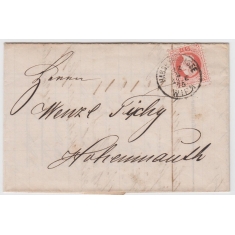 Herrn
Wenzl Tichy
Hohenmauth
WIEN